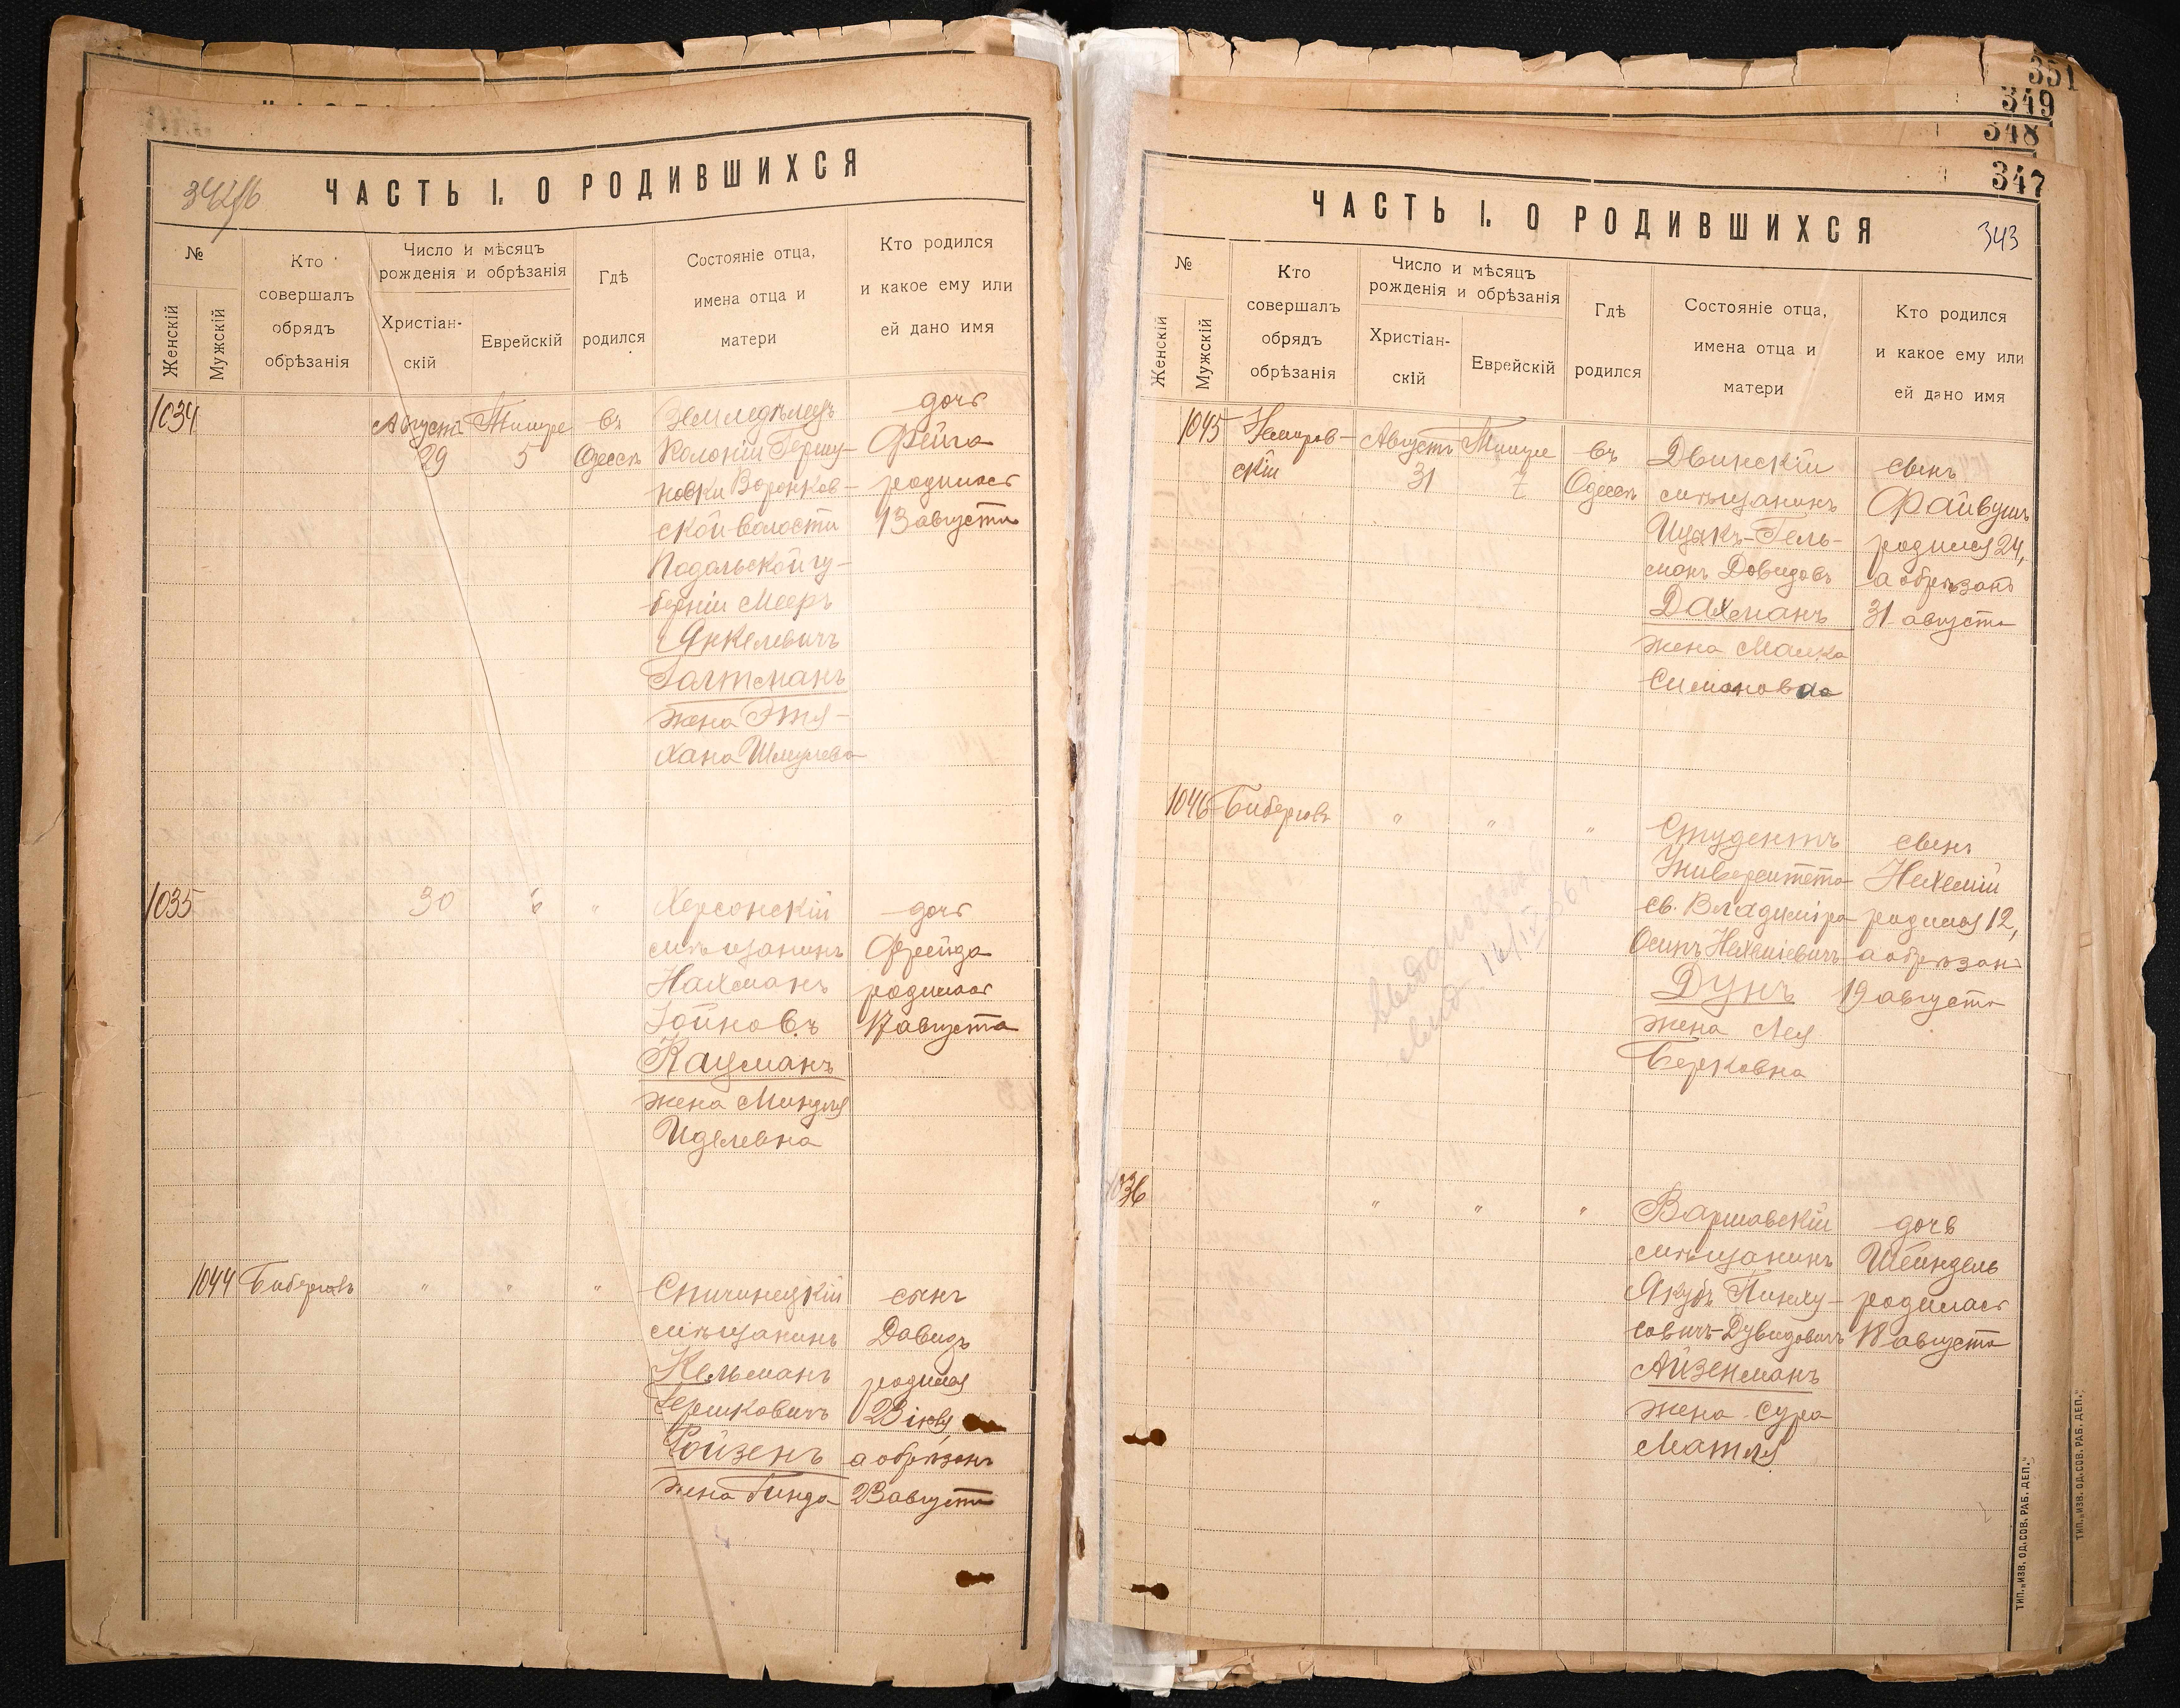 ЧАСТЬ I. О РОДИВШИХСЯ
№
Женскій
Мужскій
Кто
совершалъ
обрядъ
обрѣзанія
Число и мѣсяцъ
рожденія и обрѣзанія
Христіан-
скій
Еврейскій
Гдѣ
родился
Состояніе отца,
имена отца и
матери
Кто родился
и какое ему или
ей дано имя
1034
Августа
29
Тишре
5
въ
Одессѣ
Земледѣлецъ
Колоніи Гершу-
новки Воронков-
ской волости
Подольской гу-
берніи Мееръ
Янкелевичъ
Голтманъ
жена Этя-
Хана Шмулева
дочь
Фейга
родилась
13 августа
1035
30
6
"
Херсонскій
мѣщанинъ
Нахманъ
Іойновъ
Кацманъ
жена Миндля
Иделевна
дочь
Фрейда
родилась
17 августа
1044
Биберговъ
"
"
"
Спичинецкій
мѣщанинъ
Кельманъ
Гершковичъ
Ройзенъ
жена Гинда
сынъ
Давидъ
родился
23 іюля,
а обрѣзанъ
23 августа
351
349
348
347
ЧАСТЬ I. О РОДИВШИХСЯ
343
№
Женскій
Мужскій
Кто
совершалъ
обрядъ
обрѣзанія
Число и мѣсяцъ
рожденія и обрѣзанія
Христіан-
скій
Еврейскій
Гдѣ
родился
Состояніе отца,
имена отца и
матери
Кто родился
и какое ему или
ей дано имя
1045
Немиров-
скій
Августъ
31
Тишре
7
въ
Одессѣ
Двинскій
мѣщанинъ
Ицыкъ-Гель-
манъ Довидовъ
Дахманъ
жена Малка
Симоновна
сынъ
Файвушъ
родился 24,
а обрѣзанъ
31 августа
1046
Биберговъ
"
"
"
Студентъ
Университета
св. Владиміра
Осипъ Нехеміевичъ
Дунъ
жена Лея
Берковна
сынъ
Нехемій
родился 12,
а обрѣзанъ
19 августа
1036
"
"
"
Варшавскій
мѣщанинъ
Якубъ Пинху-
совичъ-Дувидовичъ
Айзенманъ
жена Сура
Матля
дочь
Шейндель
родилась
18 августа
ТИП. „ИЗВ. ОД. СОВ. РАБ. ДЕП."
ТИП. „ИЗВ. ОД. СОВ. РАБ. ДЕП."